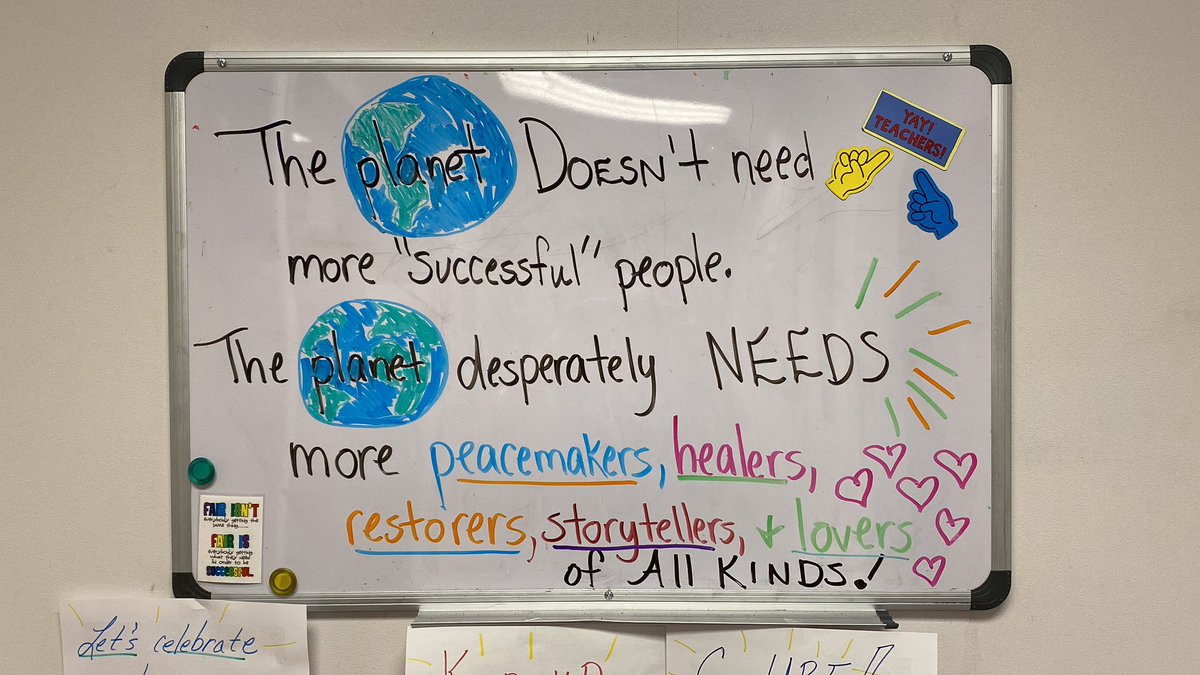 The planet DOESN't need
more "successful" people.
The planet desperately NEEDS
more peacemakers, healers,
restorers, storytellers, + lovers
of All KINDS!
YAY!
TEACHERS!
FAIR ISN'T
everybody getting the
same thing......
FAIR IS
everybody getting
what they need
in order to be
SUCCESSFUL.
Let's celebrate